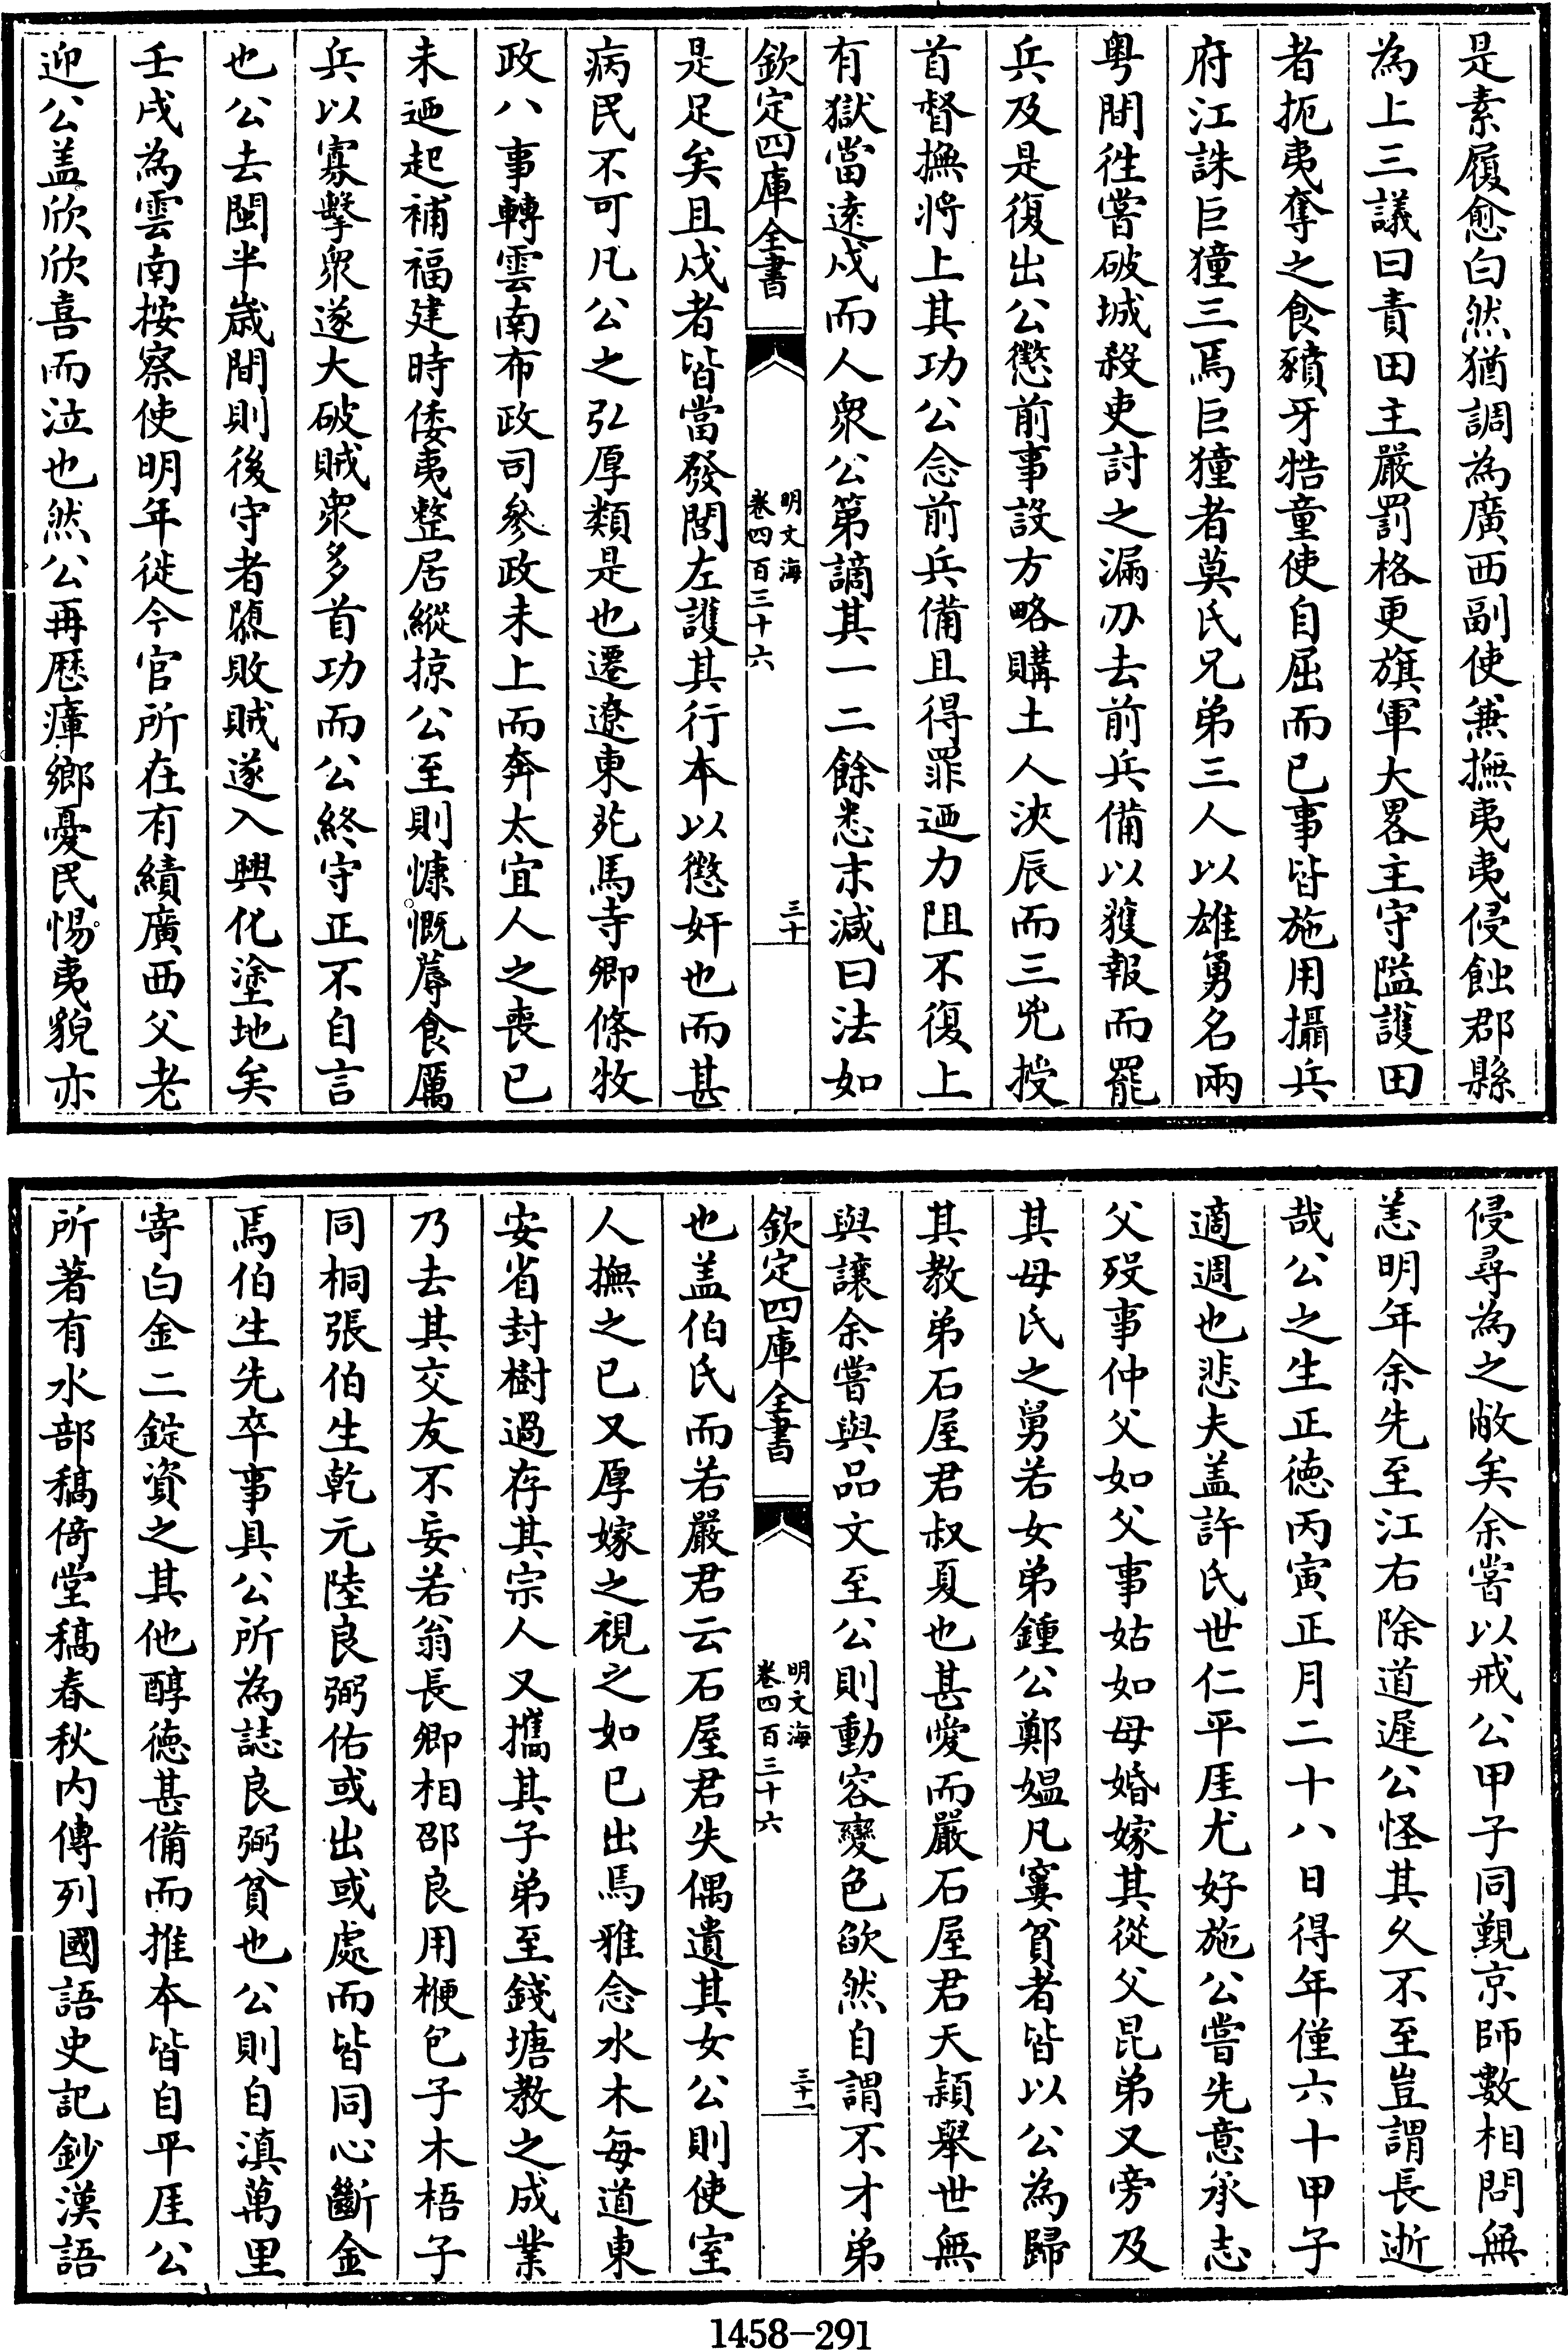 是素履愈白然猶調為廣西副使兼撫夷夷侵蝕郡縣
為上三議曰責田主嚴罰格更旗軍大畧主守隘護田
者扼夷奪之食豶牙牿童使自屈而已事皆施用攝兵
府江誅巨獞三焉巨獞者莫氏兄弟三人以雄勇名兩
粤間徃嘗破城殺吏討之漏刃去前兵備以獲報而罷
兵及是復出公懲前事設方略購土人浹辰而三兇授
首督撫將上其功公念前兵備且得罪迺力阻不復上
有獄當遠戍而人衆公第謫其一二餘悉末減曰法如
欽定四庫全書
明文海
卷四百三十六
三十
是足矣且戍者皆當發閭左護其行本以懲奸也而甚
病民不可凡公之弘厚類是也遷遼東苑馬寺卿條牧
政八事轉雲南布政司參政未上而奔太宜人之喪已
未迺起補福建時倭夷整居縱掠公至則慷慨蓐食厲
兵以寡擊衆遂大破賊衆多首功而公終守正不自言
也公去閩半歲間則後守者隳敗賊遂入興化塗地矣
壬戌為雲南按察使明年徙今官所在有績廣西父老
迎公盖欣欣喜而泣也然公再歷瘴鄉憂民惕夷貌亦
侵尋為之敝矣余嘗以戒公甲子同覲京師數相問無
恙明年余先至江右除道遲公怪其久不至豈謂長逝
哉公之生正德丙寅正月二十八日得年僅六十甲子
適週也悲夫盖許氏世仁平厓尤好施公嘗先意承志
父歿事仲父如父事姑如母婚嫁其從父昆弟又旁及
其母氏之舅若女弟鍾公鄭媼凡窶貧者皆以公為歸
其教弟石屋君叔夏也甚愛而嚴石屋君天穎舉世無
與讓余嘗與品文至公則動容變色欿然自謂不才弟
欽定四庫全書
明文海
卷四百三十六
三十一
也盖伯氏而若嚴君云石屋君失偶遺其女公則使室
人撫之已又厚嫁之視之如已出焉雅念水木每道東
安省封樹過存其宗人又攜其子弟至錢塘教之成業
乃去其交友不妄若翁長卿相邵良用楩包子木梧子
同桐張伯生乾元陸良弼佑或出或處而皆同心斷金
焉伯生先卒事具公所為誌良弼貧也公則自滇萬里
寄白金二錠資之其他醇德甚備而推本皆自平厓公
所著有水部稿倚堂稿春秋内傳列國語史記鈔漢語
1458—291